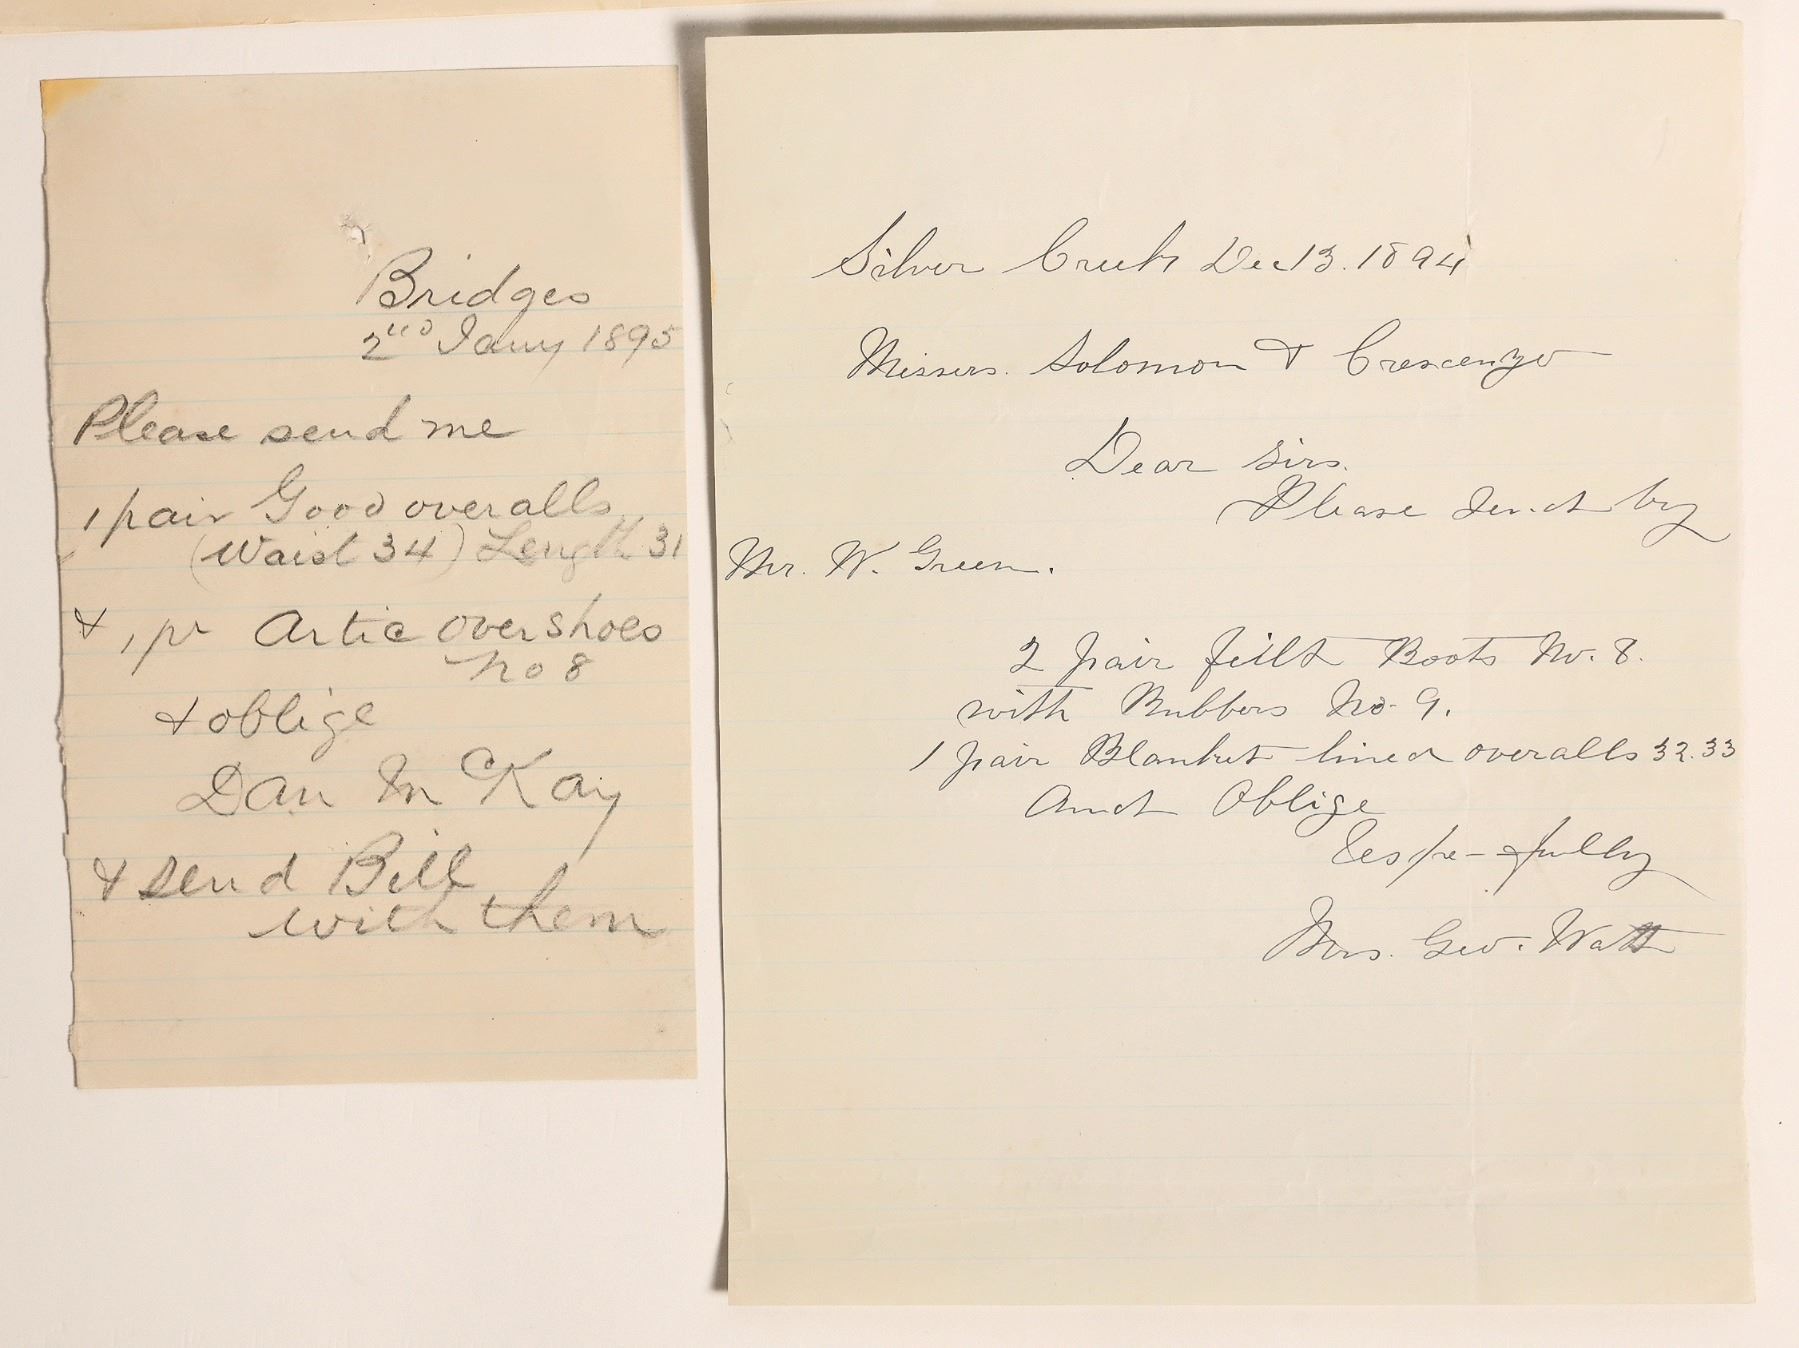 Bridges
2nd Jany 1895
Please send me
1 pair Good overalls
(Waist 34) Length 31
& 1 pr Artic overshoes
no 8
& oblige
Dan McKay
& send Bill
with them
Silver Creek Dec 13. 1894
Messers. Solomon & Crescenzo
Dear Sirs.
Please Send by
Mr. W. Green.
2 pair felt Boots No. 8.
with Rubbers No. 9.
1 pair Blanket lined overalls 32.33
And Oblige
Respe-fully
Mrs. Geo. Watt